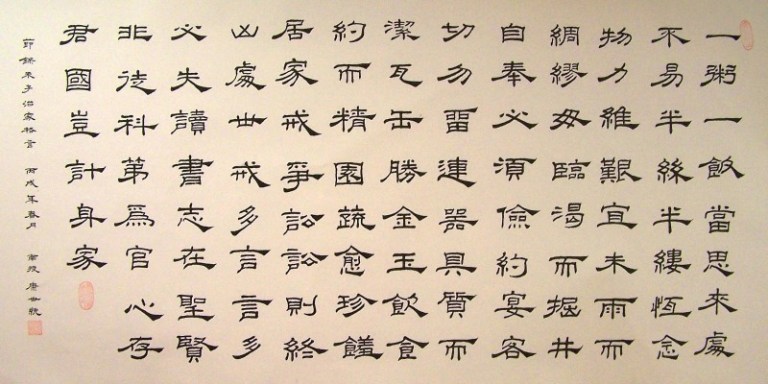 一粥一飯當思來處
不易半絲半縷恆念
物力維艱宜未雨而
綢繆毋臨渴而掘井
自奉必須儉約宴客
切勿留連器具質而
潔瓦缶勝金玉飲食
約而精園蔬愈珍饈
居家戒爭訟訟則終
凶處世戒多言言多
必失讀書志在聖賢
非徒科第爲官心存
君國豈計身家
節錄朱子治家格言 丙戌年春月